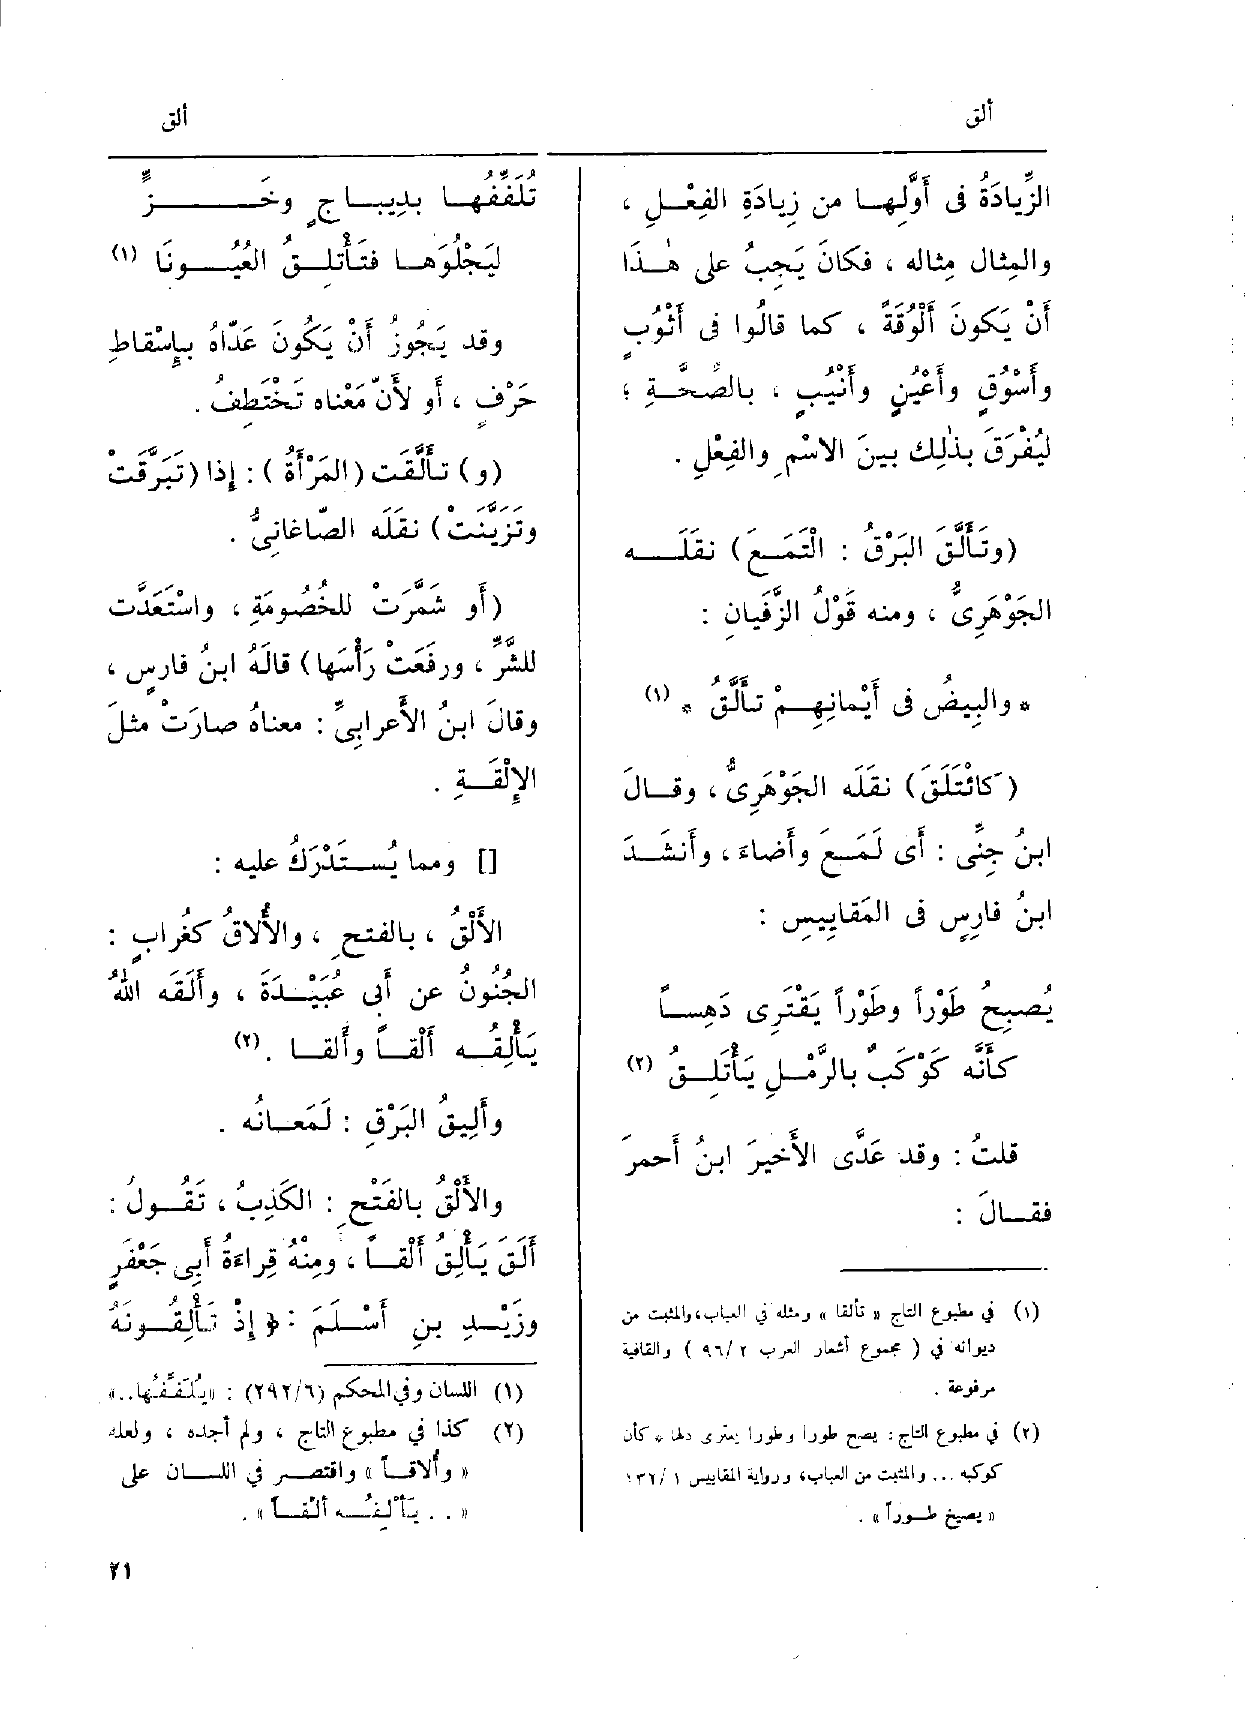 ألق
ألق
الزِّيادَةُ فى أَوَّلِهـا من زِيادَةِ الفِعْـلِ ،
والمِثال مِثاله ، فكانَ يَجِبُ على هٰـذَا
أَنْ يَكونَ أَلْوُقَةً ، كما قالُوا فى أَثْوُبٍ
وأَسْوُقٍ وأَعْيُنٍ وأَنْيُبٍ ، بالصِّحَّـةِ ؛
لِيُفْرَقَ بذٰلِك بينَ الاسْمِ والفِعْلِ .
(وتَأَلَّقَ البَرْقُ : الْتَمَـعَ) نقَلَـه
الجَوْهَرِىُّ ، ومنه قَوْلُ الزَّفَيانِ :
* والبِيضُ فى أَيْمانِهِـمْ تَأَلَّقُ * (١)
(كائْتَلَقَ) نقَلَه الجَوْهَرِىُّ ، وقـالَ
ابنُ جِنِّى : أَى لَمَـعَ وأَضاءَ ، وأَنشَـدَ
ابنُ فارِسٍ فى المَقايِيسِ :
يُصبِحُ طَوْراً وطَوْراً يَقْتَرِى دَهِسـاً
كأَنَّه كَوْكَبٌ بالرَّمْـلِ يَأْتَلِـقُ (٢)
قلتُ : وقد عَدَّى الأَخيرَ ابنُ أَحمرَ
فقـالَ :
(١) في مطبوع التاج « تألقا » ومثله في العباب، والمثبت من
ديوانه في ( مجموع أشعار العرب ٢ /٩٦ ) والقافية
مرفوعة .
(٢) في مطبوع التاج : يصبح طورا وطورا يعترى دلها * كأن
كوكبه ... والمثبت من العباب، ورواية المقاييس ١ /١٣٢
« يصيخ طـوراً » .
تُلَفِّفُهـا بدِيبـاجٍ وخَـــــزٍّ
ليَجْلُوَهـا فتَأْتَلِـقُ العُيُـــونَا (١)
وقد يَجُوز أَنْ يَكُونَ عَدّاهُ بإِسْقاطِ
حَرْفٍ ، أَو لأَنَّ مَعْناه تَخْتَطِفُ .
(و) تَأَلَّقَت (المَرْأَةُ ) : إِذا (تَبَرَّقَتْ
وتَزَيَّنَتْ) نقَلَه الصّاغانِىُّ .
(أَو شَمَّرَتْ للخُصُومَةِ ، واسْتَعَدَّت
للشَّرِّ ، ورفَعَتْ رَأْسَها) قالَهُ ابنُ فارسٍ ،
وقالَ ابنُ الأَعرابِىِّ : معناهُ صارَتْ مثلَ
الإِلْقَـةِ .
[] ومما يُسـتَدْرَكُ عليه :
الأَلْقُ ، بالفتحِ ، والأُلاقُ كغُرابٍ :
الجُنُونُ عن أَبى عُبَيْـدَةَ ، وأَلَقَه اللهُ
يَأْلِقُـه أَلْقـاً وأَلقـا . (٢)
وأَلِيقُ البَرْقِ : لَمَعـانُه .
والأَلْقُ بالفَتْحِ : الكَذِبُ ، تَقُـولُ :
أَلَقَ يَأْلِقُ أَلْقـاً ، ومِنْهُ قِراءَةُ أَبِى جَعْفَرٍ
وزَيْـدِ بنِ أَسْـلَمَ : ﴿ إِذْ تَأْلِقُـونَهُ
(١) اللسان وفي المحكم (٦/ ٢٩٢) : «يُلَفِّفُها..»
(٢) كذا في مطبوع التاج ، ولم أجده ، ولعله
« وأُلاقـاً » واقتصـر في اللسـان على
« . . يَأْلِقُـه أَلْقـاً » .
٢١